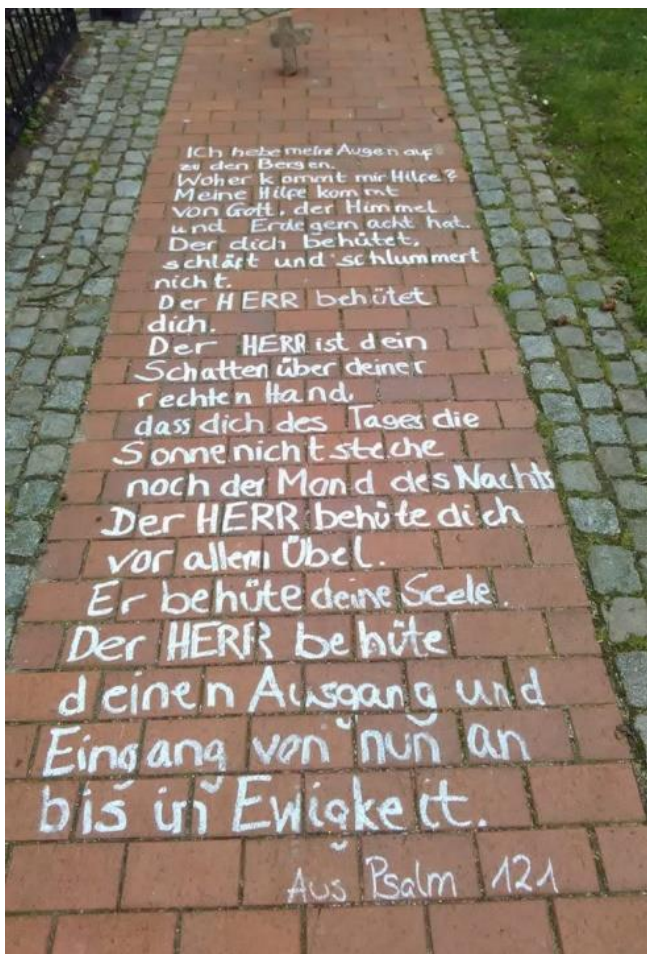 Ich hebe meine Augen auf
zu den Bergen.
Woher kommt mir Hilfe?
Meine Hilfe kommt
von Gott, der Himmel
und Erde gemacht hat.
Der dich behütet,
schläft und schlummert
nicht.
Der HERR behütet
dich.
Der HERR ist dein
Schatten über deiner
rechten Hand,
dass dich des Tages die
Sonne nicht steche
noch der Mond des Nachts
Der HERR behüte dich
vor allem Übel.
Er behüte deine Seele.
Der HERR behüte
deinen Ausgang und
Eingang von nun an
bis in Ewigkeit.
Aus Psalm 121